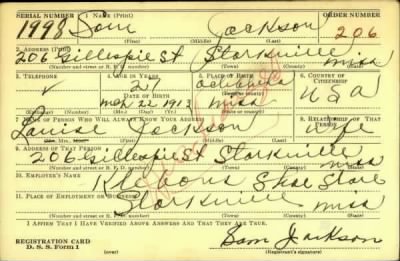 SERIAL NUMBER 1. NAME (Print) ORDER NUMBER
1998 Sam Jackson 206
2. ADDRESS (Print)
206 Gillespie St Starkville Miss
(Number and street or R. F. D. number) (Town) (County) (State)
3. TELEPHONE 4. AGE IN YEARS 5. PLACE OF BIRTH 6. COUNTRY OF CITIZENSHIP
Oktibbeha
DATE OF BIRTH
Mch 22 1913 Miss USA
7. NAME OF PERSON WHO WILL ALWAYS KNOW YOUR ADDRESS 8. RELATIONSHIP OF THAT PERSON
Louise Jackson Wife
9. ADDRESS OF THAT PERSON
206 Gillespie St Starkville Miss
(Number and street or R. F. D. number) (Town) (County) (State)
10. EMPLOYER'S NAME
Shoe Store
11. PLACE OF EMPLOYMENT OR BUSINESS
Starkville Miss
(Number and street or R. F. D. number) (Town) (County) (State)
I AFFIRM THAT I HAVE VERIFIED ABOVE ANSWERS AND THAT THEY ARE TRUE.
REGISTRATION CARD
D. S. S. Form 1
Sam Jackson
(Registrant's signature)